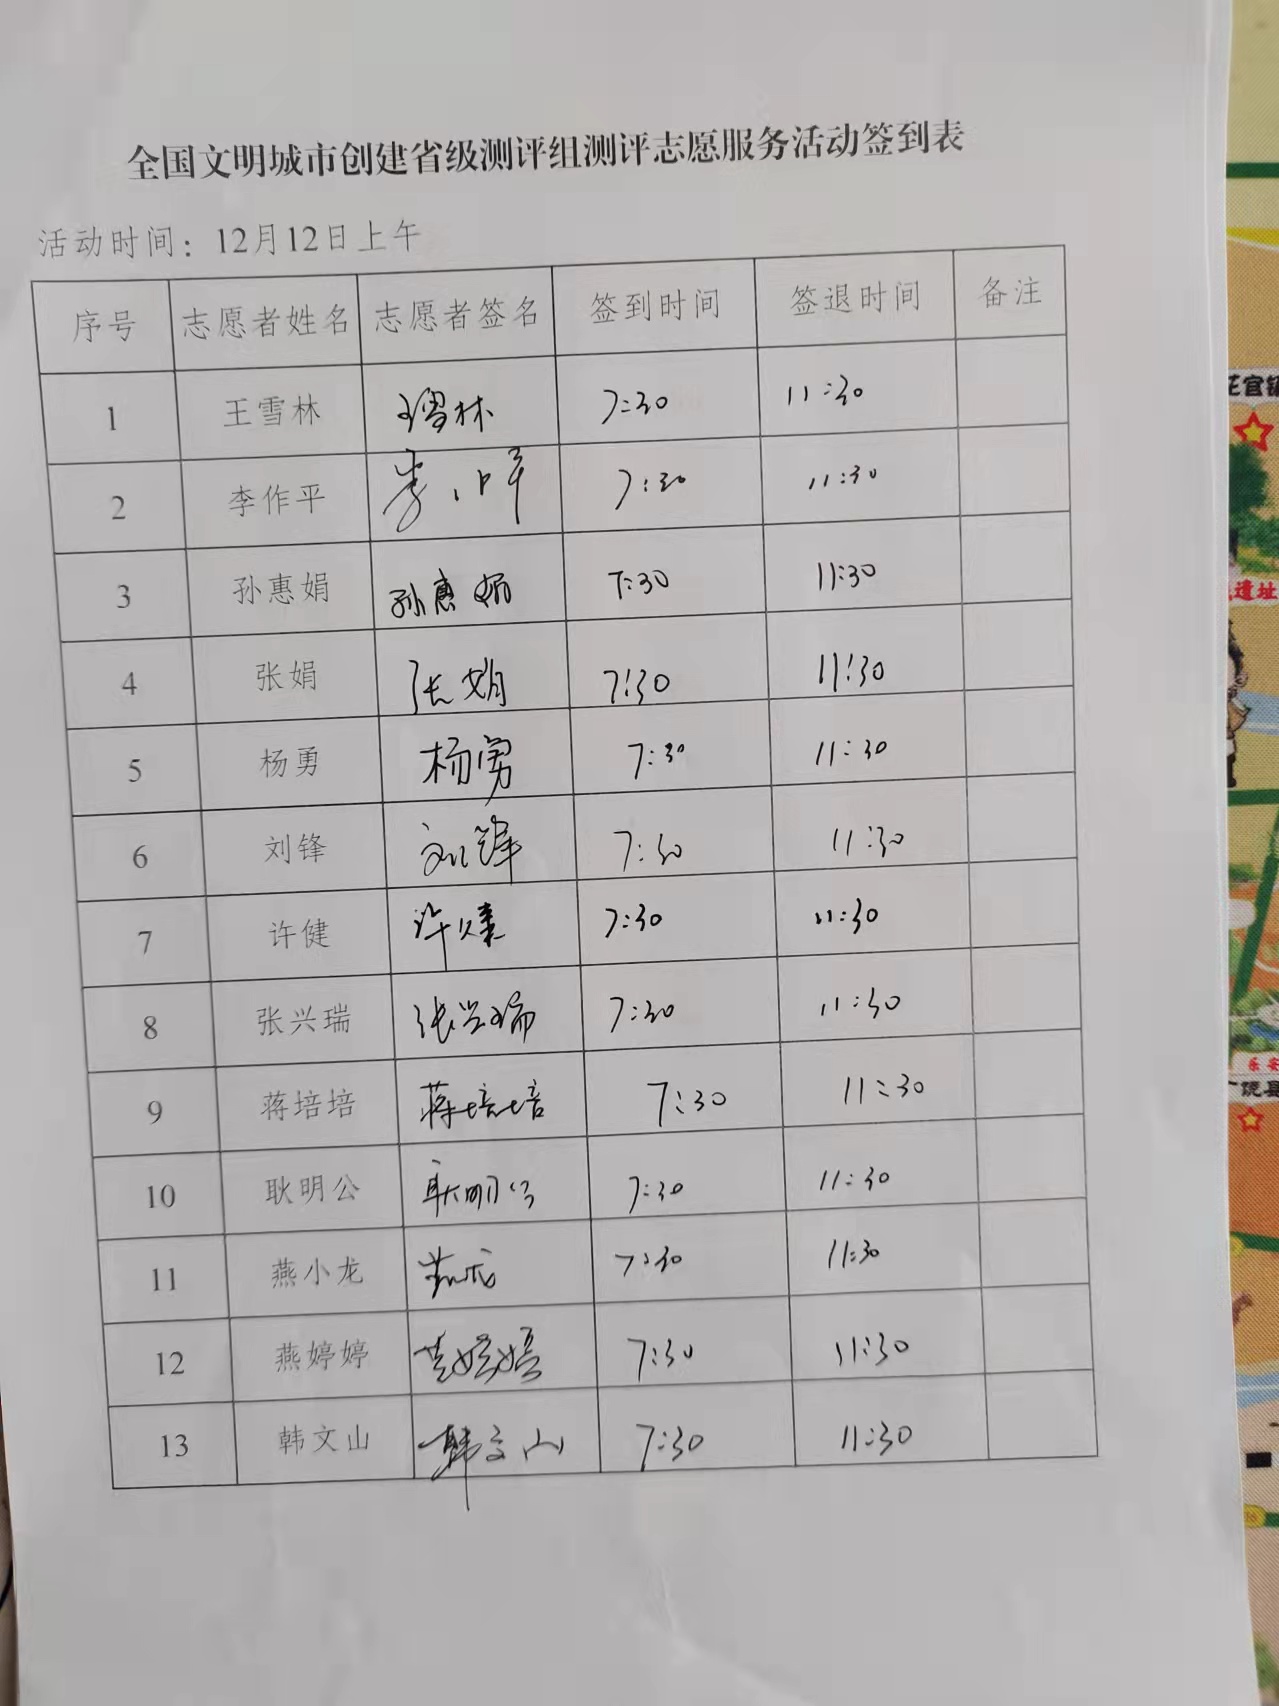 全国文明城市创建省级测评组测评志愿服务活动签到表
活动时间：12月12日上午
序号 志愿者姓名 志愿者签名 签到时间 签退时间 备注
1 王雪林 王雪林 7:30 11:30
2 李作平 李作平 7:30 11:30
3 孙惠娟 孙惠娟 7:30 11:30
4 张娟 张娟 7:30 11:30
5 杨勇 杨勇 7:30 11:30
6 刘锋 刘锋 7:30 11:30
7 许健 许健 7:30 11:30
8 张兴瑞 张兴瑞 7:30 11:30
9 蒋培培 蒋培培 7:30 11:30
10 耿明公 耿明公 7:30 11:30
11 燕小龙 燕小龙 7:30 11:30
12 燕婷婷 燕婷婷 7:30 11:30
13 韩文山 韩文山 7:30 11:30
官镇
遗址
乐安
饶县